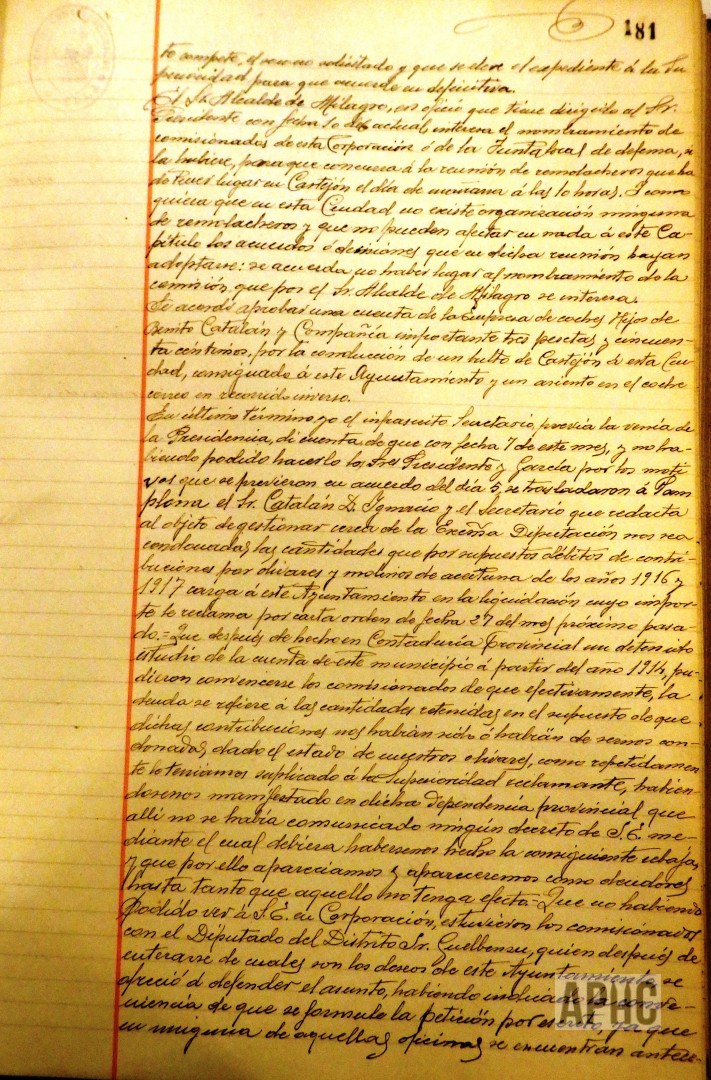 181
to compete, el socorro solicitado y que se eleve el expediente á la Su
perioridad para que acuerde en definitiva.
El Sr. Alcalde de Milagro, en oficio que tiene dirigido al Sr.
Presidente con fecha 10 del actual, interesa el nombramiento de
comisionados de esta Corporación ó de la Junta local de defensa, si
la hubiere, para que concurra á la reunión de remolacheros que ha
de tener lugar en Castejón el día de mañana á las 10 horas. Y como
quiera que en esta Ciudad no existe organización ninguna
de remolacheros y que no pueden afectar en nada á este Ca-
pítulo los acuerdos ó decisiones que en dicha reunión hayan
adoptarse: se acuerda no haber lugar al nombramiento de la
comisión que por el Sr. Alcalde de Milagro se interesa.
Se acordó aprobar una cuenta de la Empresa de coches Hijos de
Benito Catalán y Compañía importante tres pesetas y cincuen-
ta céntimos, por la conducción de un bulto de Castejón á esta Ciu-
dad, consignado á este Ayuntamiento y un asiento en el coche
correo en recorrido inverso.
En último término yo el infrascrito Secretario, previa la venia de
la Presidencia, di cuenta de que con fecha 7 de este mes, y no ha-
biendo podido hacerlo los Sres Presidente y García por los moti-
vos que se previeron en acuerdo del día 5, se trasladaron á Pam
plona el Sr. Catalán D. Ignacio y el Secretario que redacta
al objeto de gestionar cerca de la Excma Diputación nos sea
condonadas las cantidades que por supuestos débitos de contri-
buciones por olivares y molinos de aceituna de los años 1916 y
1917 carga á este Ayuntamiento en la liquidación cuyo impor-
te le reclama por carta orden de fecha 27 del mes próximo pasa-
do.=Que después de hecho en Contaduría Provincial un detenido
estudio de la cuenta de este municipio á partir del año 1914, pu-
dieron convencerse los comisionados de que efectivamente, la
deuda se refiere á las cantidades retenidas en el supuesto de que
dichas contribuciones nos habían sido ó habrían de sernos con-
donadas dado el estado de nuestros olivares, como repetidamen-
te lo teníamos suplicado á la Superioridad reclamante, habién-
dosenos manifestado en dicha dependencia provincial que
allí no se había comunicado ningún decreto de S.E. me-
diante el cual debiera habersenos hecho la consiguiente rebaja,
y que por ello aparecíamos y apareceremos como deudores
hasta tanto que aquello no tenga efecto.=Que no habiendo
podido ver á S.E. en Corporación, estuvieron los comisionados
con el Diputado del Distrito Sr. Guelbenzu, quien después de
enterarse de cuales son los deseos de este Ayuntamiento, se
ofreció á defender el asunto, habiendo indicado la conve-
niencia de que se formule la petición por escrito, ya que
en ninguna de aquellas oficinas se encuentran antece-
APHC